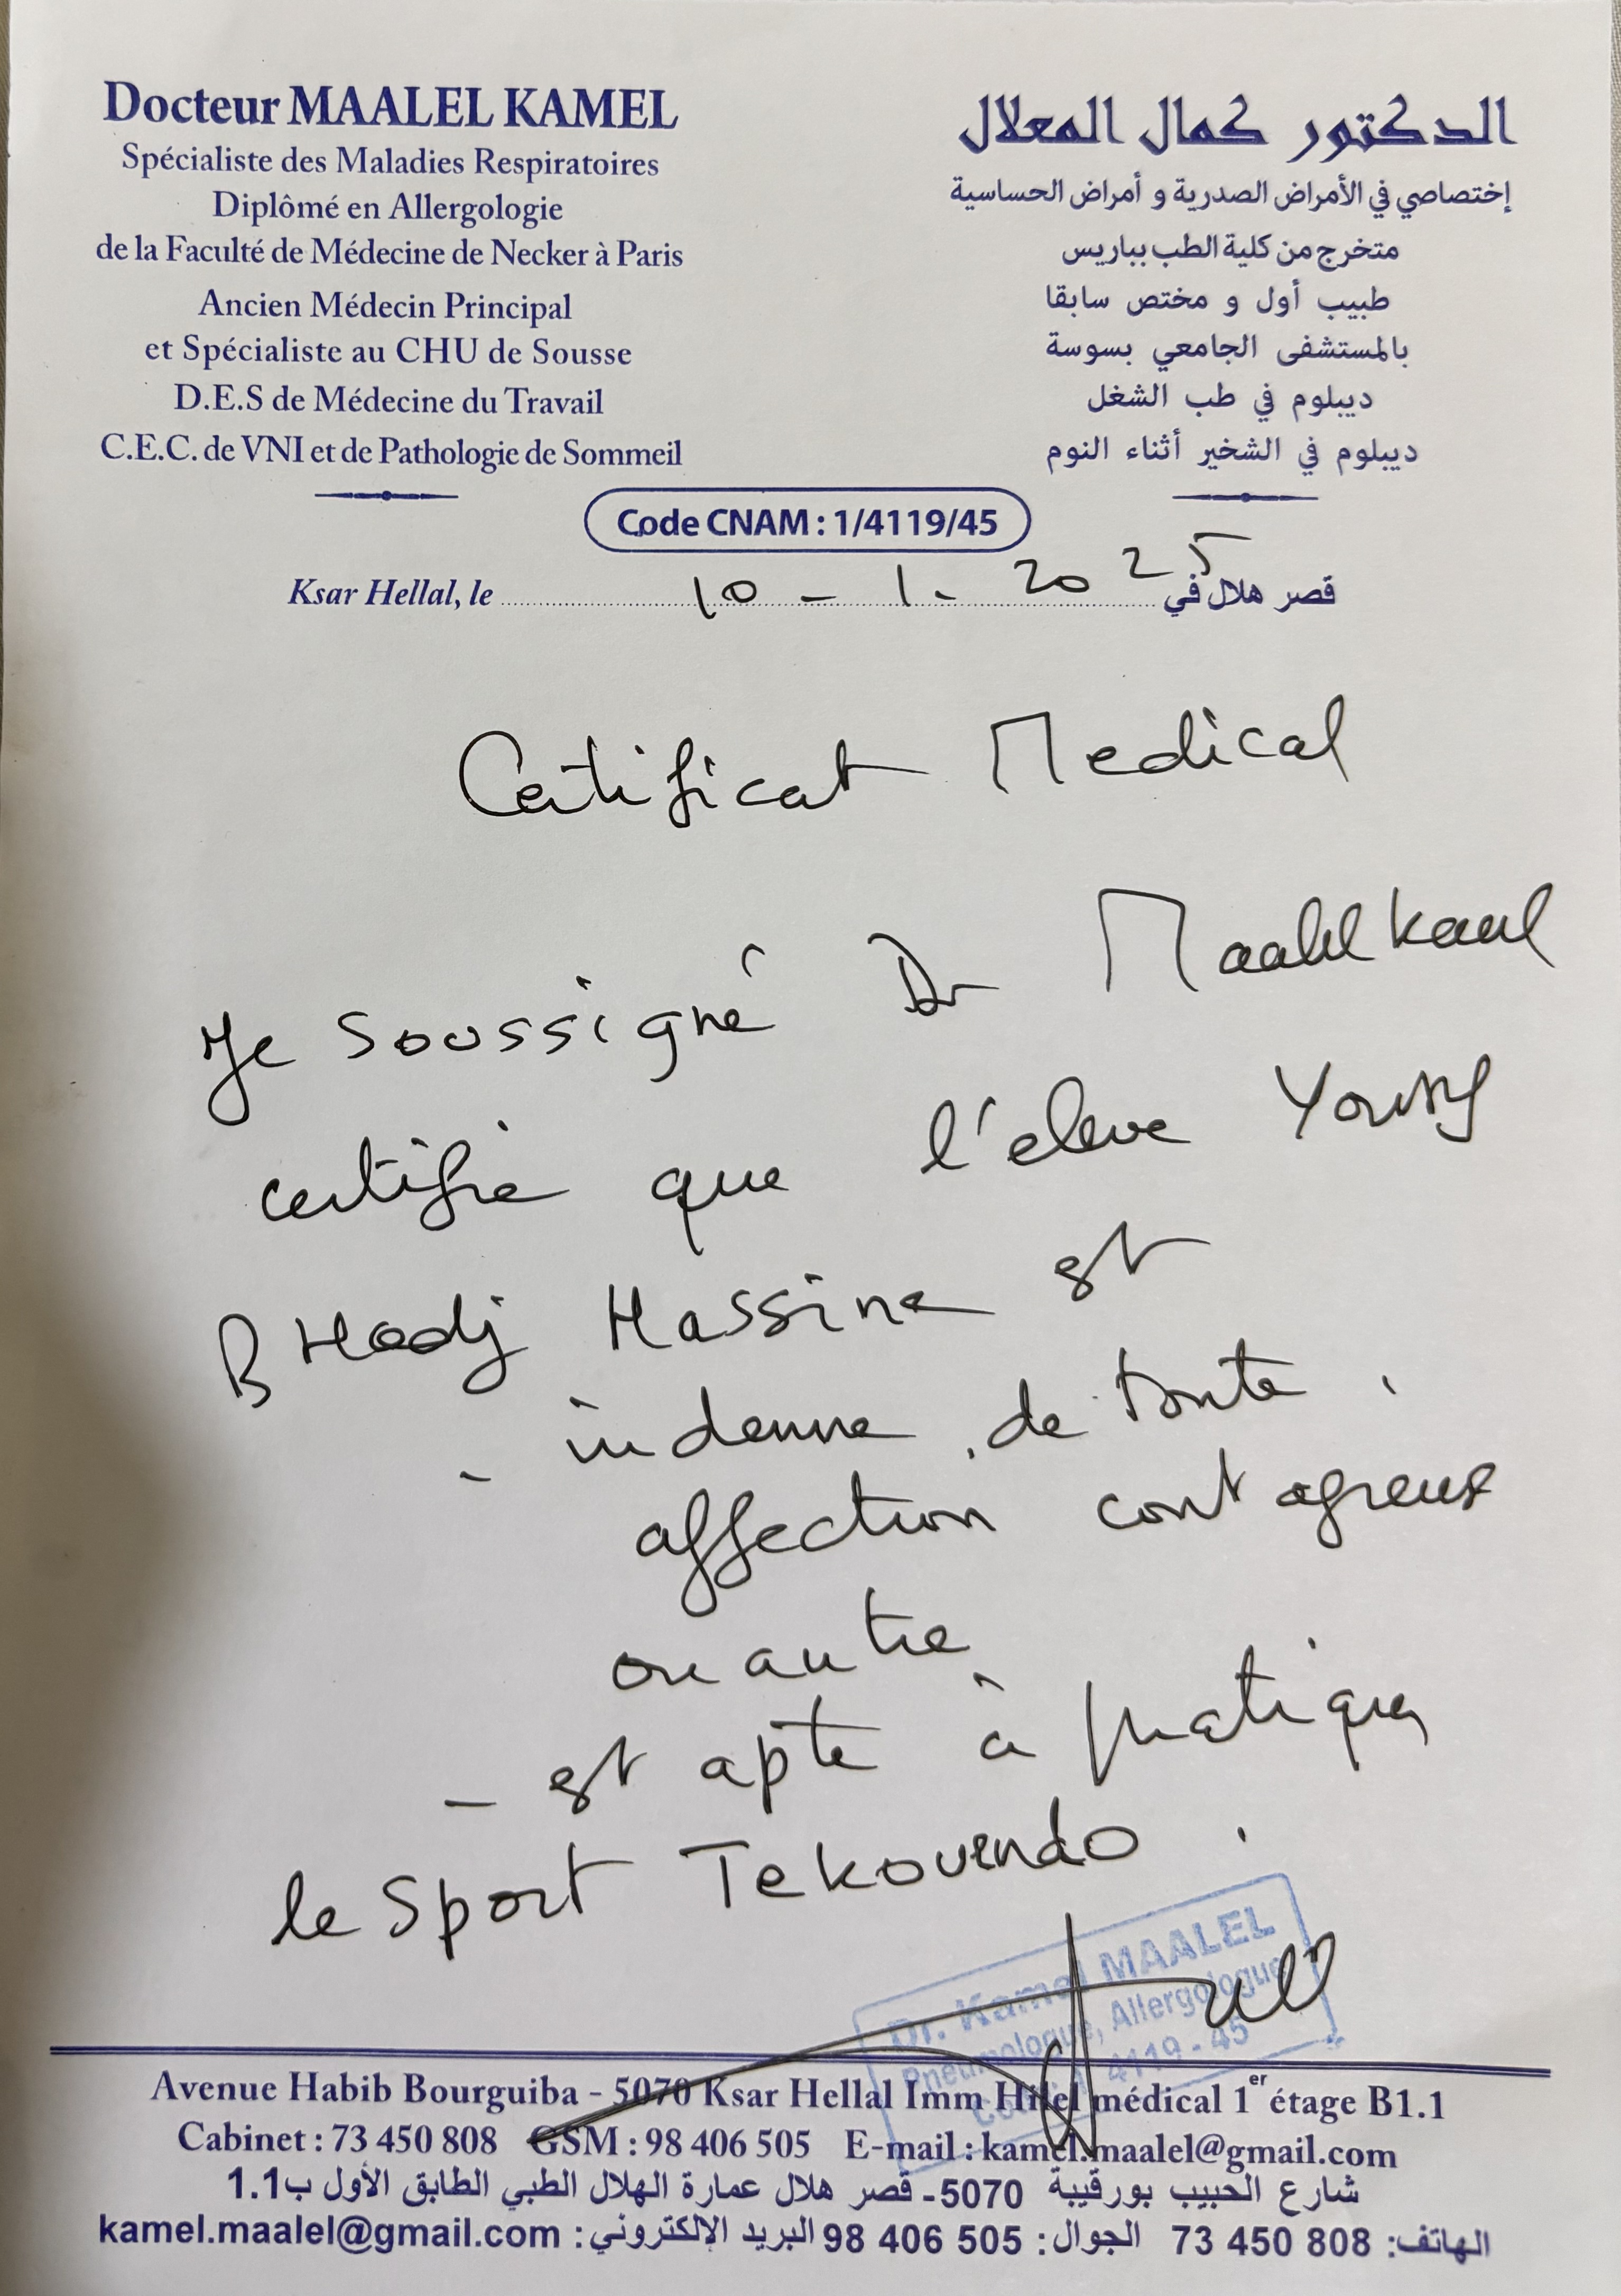 Docteur MAALEL KAMEL
Spécialiste des Maladies Respiratoires
Diplômé en Allergologie
de la Faculté de Médecine de Necker à Paris
Ancien Médecin Principal
et Spécialiste au CHU de Sousse
D.E.S de Médecine du Travail
C.E.C. de VNI et de Pathologie de Sommeil
الدكتور كمال المعلال
إختصاصي في الأمراض الصدرية و أمراض الحساسية
متخرج من كلية الطب بباريس
طبيب أول و مختص سابقا
بالمستشفى الجامعي بسوسة
ديبلوم في طب الشغل
ديبلوم في الشخير أثناء النوم
Code CNAM : 1/4119/45
Ksar Hellal, le 10 - 1 - 2025 قصر هلال في
Certificat Medical
Je soussigné Dr Maalel Kamel
certifie que l'eleve Youssef
B Hadj Hassine est
- indemne de toute
affection contagieuse
ou autre
- est apte à pratiquer
le sport Tekouendo.
Dr. Kamel MAALEL
Pneumologue, Allergologue
4119 - 45
Avenue Habib Bourguiba - 5070 Ksar Hellal Imm Hilel médical 1er étage B1.1
Cabinet : 73 450 808 GSM : 98 406 505 E-mail : kamel.maalel@gmail.com
شارع الحبيب بورقيبة 5070- قصر هلال عمارة الهلال الطبي الطابق الأول ب1.1
الهاتف: 808 450 73 الجوال: 505 406 98 البريد الإلكتروني: kamel.maalel@gmail.com